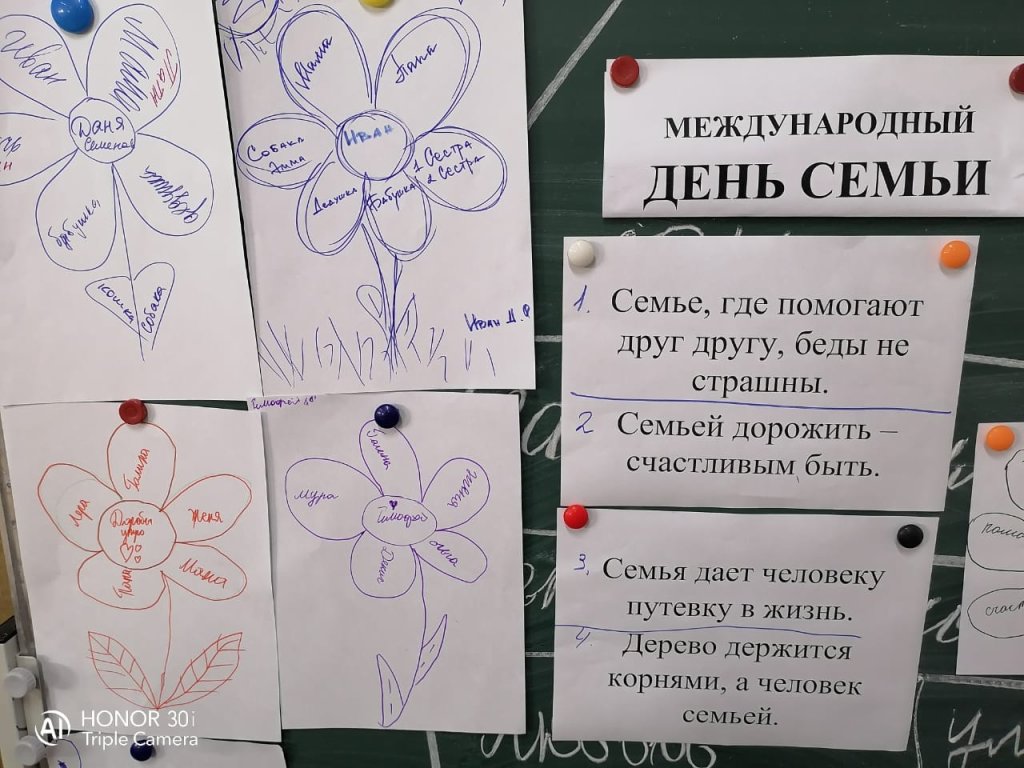 Иван
Мама
Папа
Даня
Семенов
дедушка
бабушка
кошка
собака
Мама
Папа
Иван
Собака
Эмма
1 Сестра
2 Сестра
Дедушка
Бабушка
Иван Д. Ф
МЕЖДУНАРОДНЫЙ
ДЕНЬ СЕМЬИ
1. Семье, где помогают
друг другу, беды не
страшны.
2 Семьей дорожить –
счастливым быть.
3, Семья дает человеку
путевку в жизнь.
4. Дерево держится
корнями, а человек
семьей.
Галина
Женя
Мама
Папа
Галина
Мура
Тимофей
Ольга
любовь
HONOR 30i
Triple Camera